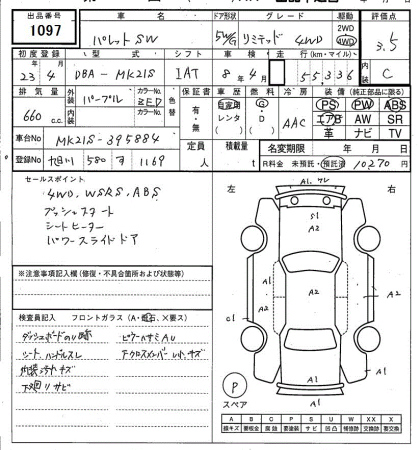 出品番号 車名 ドア形状 グレード 駆動 評価点
1097 パレットSW 5W/G リミテッド 4WD 2WD 4WD 3.5
初度登録 型式 シフト 車検 走行(km・マイル) 内装
23年4月 DBA-MK21S IAT 8年4月 55,336 C
排気量 外装 パープル カラーNo. ZED 色替 保証書 車歴 燃料 冷房 装備(純正部品に限る)
660 c.c. 内装 カラーNo. 有・無 自家用 レンタ G D AAC PS PW ABS
エアB AW SR
革 ナビ TV
車台No MK21S-395884
定員 人 積載量 t 名変期限 年 月 日
登録No 旭川 580 す 1169
R料金 未預託・預託済 10270円
セールスポイント
4WD, WSRS, ABS
プッシュスタート
シートヒーター
パワースライドドア
左 右
A1
S1
A2
A2
A2
C1
A2
A1
A1
※注意事項記入欄(修復・不具合箇所および状態等)
検査員記入 フロントガラス(A・飛石、×要ス)
ダッシュボードのり跡
シート、ハンドルスレ
内装汚れキズ
下廻りサビ
P
スペア
A B C P S U W X XX
線キズ 要板金 腐食 要塗装 サビ 凹凸 補修跡 交換跡 要交換